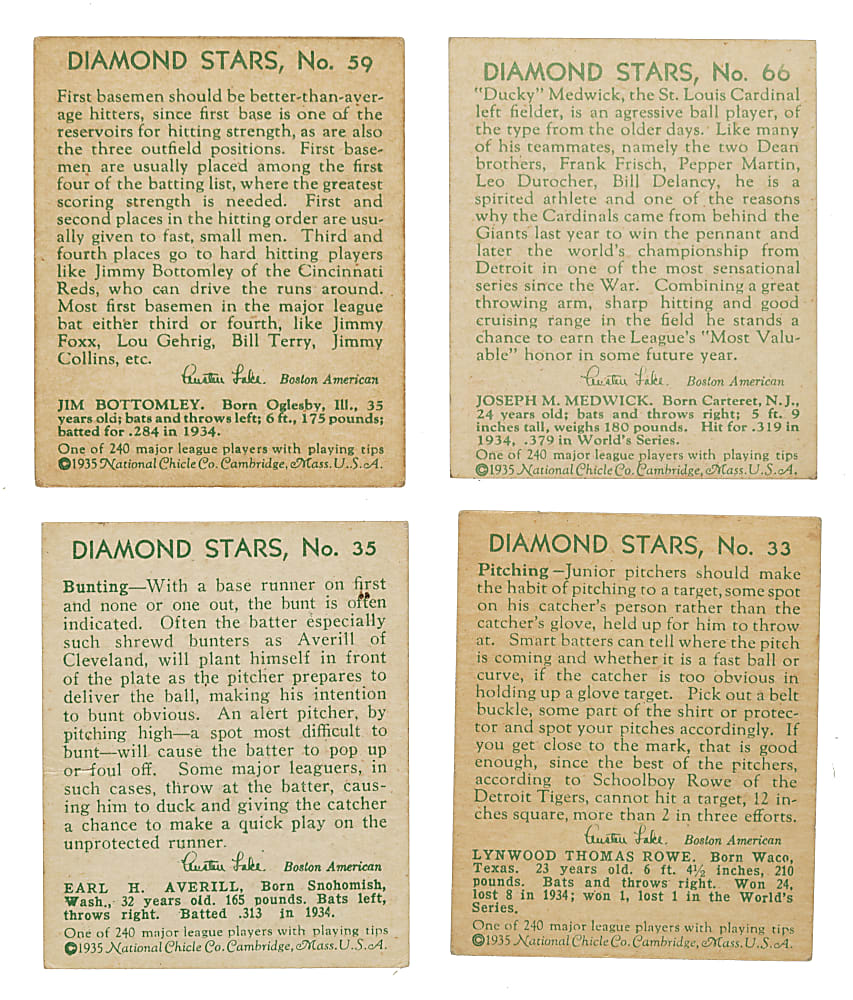 DIAMOND STARS, No. 59
First basemen should be better-than-aver-
age hitters, since first base is one of the
reservoirs for hitting strength, as are also
the three outfield positions. First base-
men are usually placed among the first
four of the batting list, where the greatest
scoring strength is needed. First and
second places in the hitting order are usu-
ally given to fast, small men. Third and
fourth places go to hard hitting players
like Jimmy Bottomley of the Cincinnati
Reds, who can drive the runs around.
Most first basemen in the major league
bat either third or fourth, like Jimmy
Foxx, Lou Gehrig, Bill Terry, Jimmy
Collins, etc.
Austen Lake. Boston American
JIM BOTTOMLEY. Born Oglesby, Ill., 35
years old; bats and throws left; 6 ft., 175 pounds;
batted for .284 in 1934.
One of 240 major league players with playing tips
©1935 National Chicle Co. Cambridge, Mass. U.S.A.
DIAMOND STARS, No. 66
"Ducky" Medwick, the St. Louis Cardinal
left fielder, is an agressive ball player, of
the type from the older days. Like many
of his teammates, namely the two Dean
brothers, Frank Frisch, Pepper Martin,
Leo Durocher, Bill Delancy, he is a
spirited athlete and one of the reasons
why the Cardinals came from behind the
Giants last year to win the pennant and
later the world's championship from
Detroit in one of the most sensational
series since the War. Combining a great
throwing arm, sharp hitting and good
cruising range in the field he stands a
chance to earn the League's "Most Valu-
able" honor in some future year.
Austen Lake. Boston American
JOSEPH M. MEDWICK. Born Carteret, N.J.,
24 years old; bats and throws right; 5 ft. 9
inches tall, weighs 180 pounds. Hit for .319 in
1934, .379 in World's Series.
One of 240 major league players with playing tips
©1935 National Chicle Co. Cambridge, Mass. U.S.A.
DIAMOND STARS, No. 35
Bunting—With a base runner on first
and none or one out, the bunt is often
indicated. Often the batter especially
such shrewd bunters as Averill of
Cleveland, will plant himself in front
of the plate as the pitcher prepares to
deliver the ball, making his intention
to bunt obvious. An alert pitcher, by
pitching high—a spot most difficult to
bunt—will cause the batter to pop up
or foul off. Some major leaguers, in
such cases, throw at the batter, caus-
ing him to duck and giving the catcher
a chance to make a quick play on the
unprotected runner.
Austen Lake. Boston American
EARL H. AVERILL, Born Snohomish,
Wash., 32 years old. 165 pounds. Bats left,
throws right. Batted .313 in 1934.
One of 240 major league players with playing tips
©1935 National Chicle Co. Cambridge, Mass. U.S.A.
DIAMOND STARS, No. 33
Pitching—Junior pitchers should make
the habit of pitching to a target, some spot
on his catcher's person rather than the
catcher's glove, held up for him to throw
at. Smart batters can tell where the pitch
is coming and whether it is a fast ball or
curve, if the catcher is too obvious in
holding up a glove target. Pick out a belt
buckle, some part of the shirt or protec-
tor and spot your pitches accordingly. If
you get close to the mark, that is good
enough, since the best of the pitchers,
according to Schoolboy Rowe of the
Detroit Tigers, cannot hit a target, 12 in-
ches square, more than 2 in three efforts.
Austen Lake. Boston American
LYNWOOD THOMAS ROWE. Born Waco,
Texas. 23 years old. 6 ft. 4½ inches, 210
pounds. Bats and throws right. Won 24,
lost 8 in 1934; won 1, lost 1 in the World's
Series.
One of 240 major league players with playing tips
©1935 National Chicle Co. Cambridge, Mass. U.S.A.